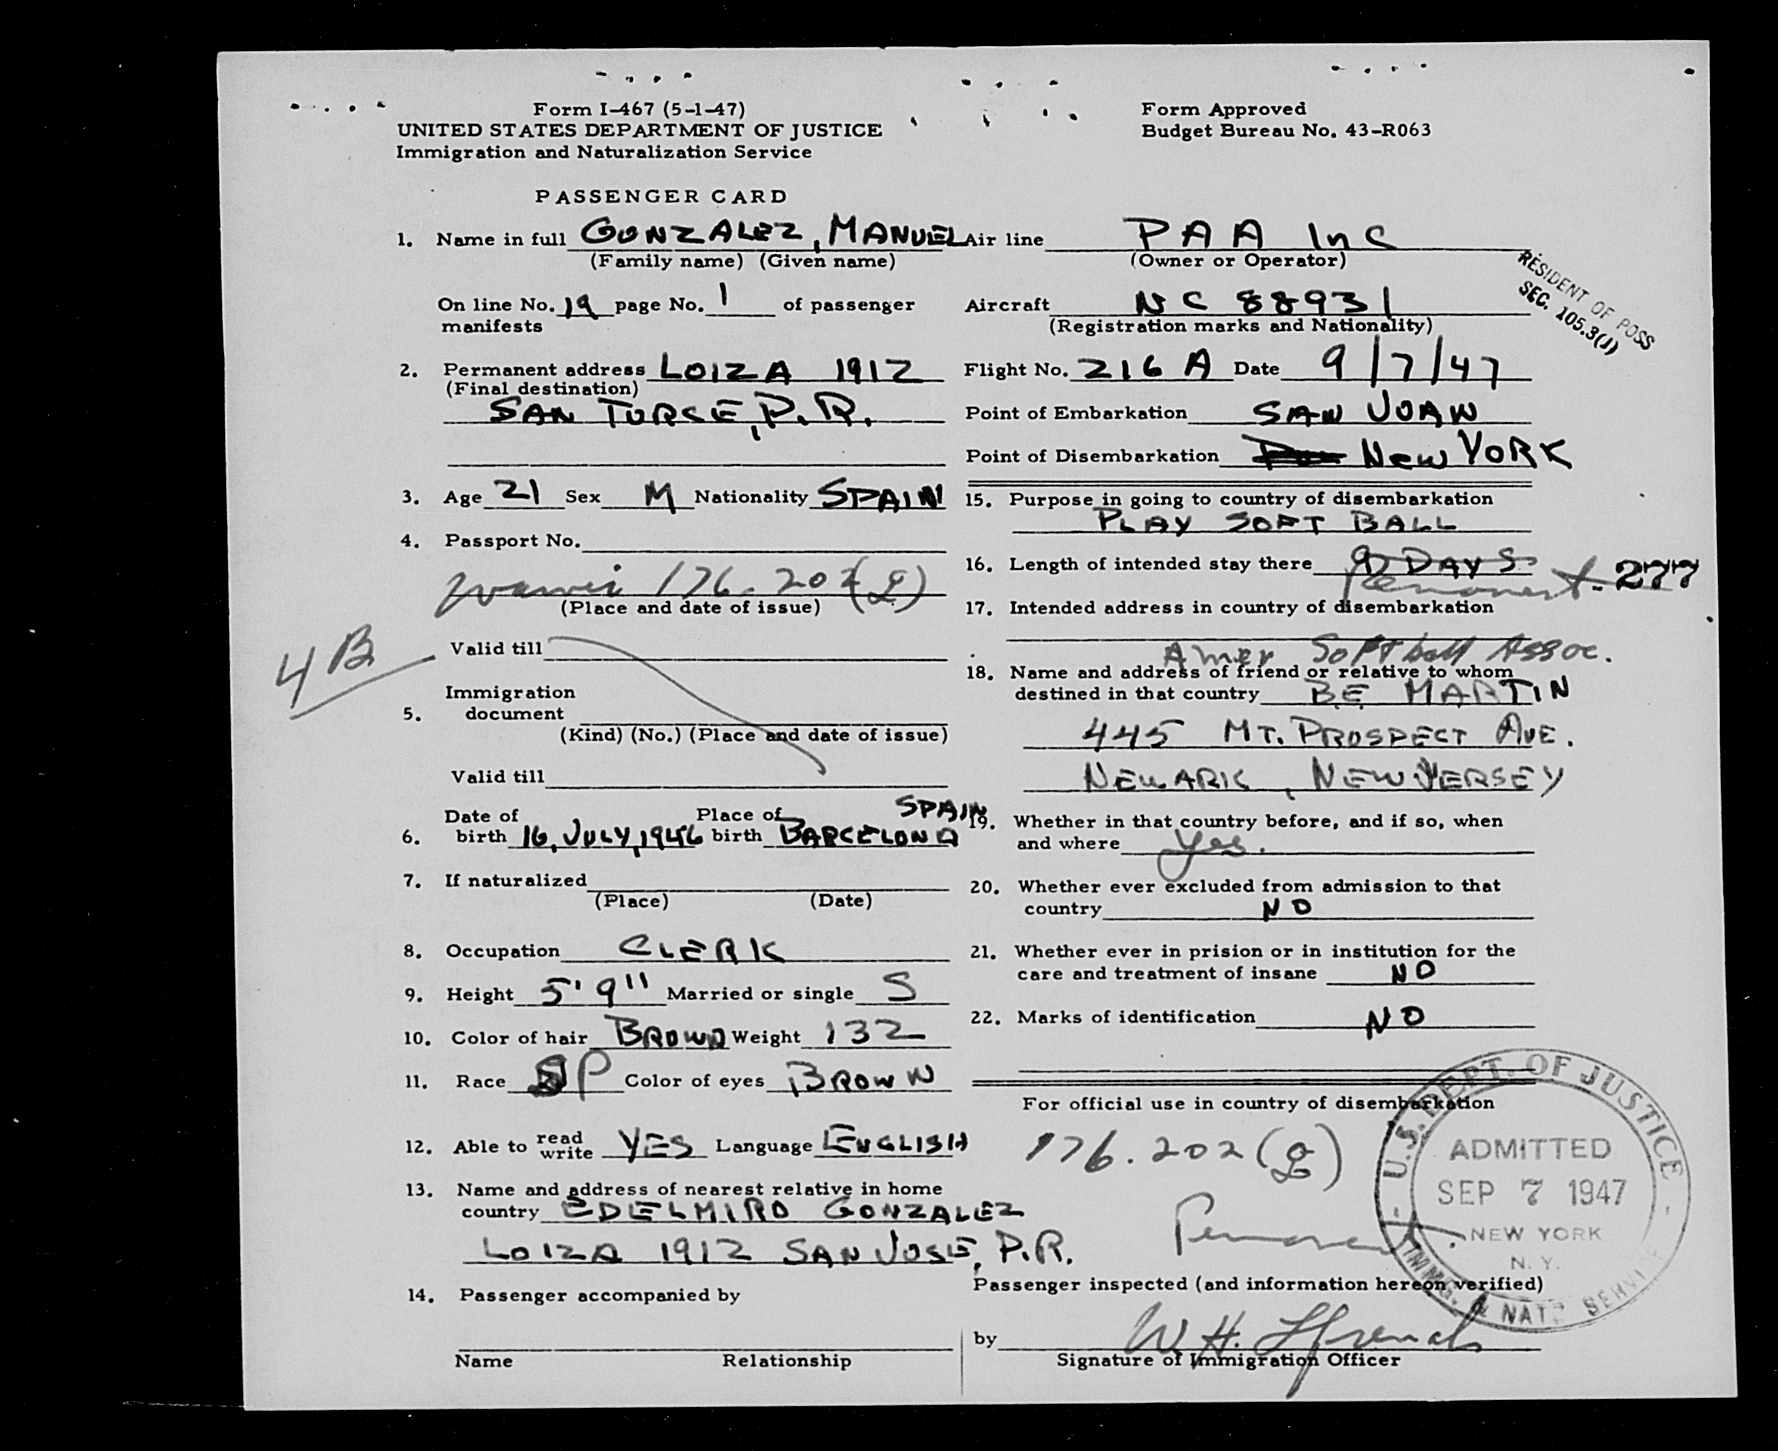 Form I-467 (5-1-47)
UNITED STATES DEPARTMENT OF JUSTICE
Immigration and Naturalization Service
Form Approved
Budget Bureau No. 43-R063
PASSENGER CARD
1. Name in full GONZALEZ, MANUEL
(Family name) (Given name)
On line No. 19 page No. 1 of passenger
manifests
2. Permanent address LOIZA 1912
(Final destination)
SAN TURCE, P.R.
3. Age 21 Sex M Nationality SPAIN
4. Passport No.
176.202(g)
(Place and date of issue)
4B
Valid till
Immigration
5. document
(Kind) (No.) (Place and date of issue)
Valid till
SPAIN
Date of Place of
6. birth 16, JULY, 1946 birth BARCELONA
7. If naturalized
(Place) (Date)
8. Occupation CLERK
9. Height 5'9" Married or single S
10. Color of hair BROWN Weight 132
11. Race SP Color of eyes BROWN
12. Able to read write YES Language ENGLISH
13. Name and address of nearest relative in home
country EDELMIRO GONZALEZ
LOIZA 1912 SAN JOSE, P.R.
14. Passenger accompanied by
Name Relationship
Air line PAA Inc
(Owner or Operator)
Aircraft NC 88931
(Registration marks and Nationality)
RESIDENT OF POSS
SEC. 105.3(J)
Flight No. 216 A Date 9/7/47
Point of Embarkation SAN JUAN
Point of Disembarkation New YORK
15. Purpose in going to country of disembarkation
PLAY SOFT BALL
16. Length of intended stay there 9 DAYS
Permanent - 277
17. Intended address in country of disembarkation
Amer Softball Assoc.
18. Name and address of friend or relative to whom
destined in that country B.E. MARTIN
445 MT. PROSPECT AVE.
NEWARK, NEW JERSEY
19. Whether in that country before, and if so, when
and where Yes.
20. Whether ever excluded from admission to that
country NO
21. Whether ever in prision or in institution for the
care and treatment of insane NO
22. Marks of identification NO
For official use in country of disembarkation
176.202(g)
Permanent.
U.S. DEPT. OF JUSTICE
ADMITTED
SEP 7 1947
NEW YORK
N.Y.
IMMG. & NATZ SERVICE
Passenger inspected (and information hereon verified)
by W. H.
Signature of Immigration Officer